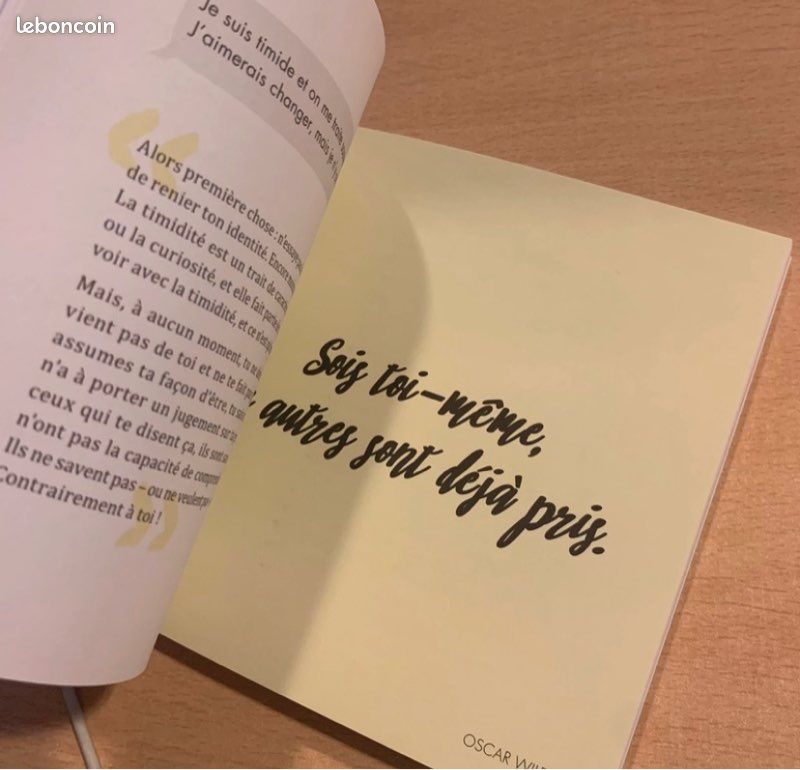 leboncoin
Je suis timide et on me traite
J'aimerais changer, mais je
Alors première chose :
de renier ton identité. Encore
La timidité est un trait de
ou la curiosité, et elle fait partie
voir avec la timidité, et ce n'est
Mais, à aucun moment, tu ne
vient pas de toi et ne te fait pas
assumes ta façon d'être, tu
n'a à porter un jugement sur
ceux qui te disent ça, ils sont
n'ont pas la capacité de
Ils ne savent pas – ou ne veulent pas
Contrairement à toi !
Sois toi-même,
autres sont déjà pris.
OSCAR